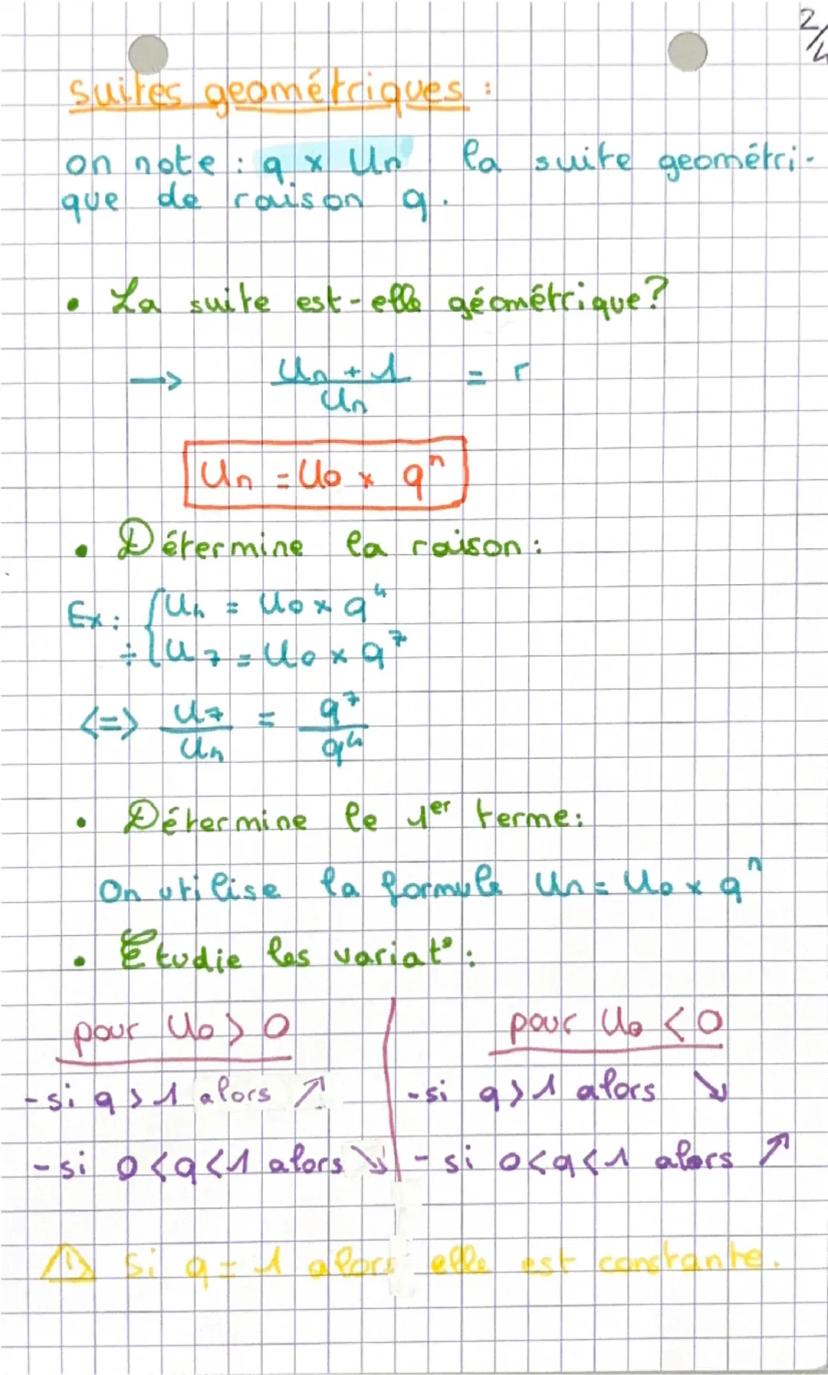 2/4
suites geométriques :
on note : q x Un la suite geométri-
que de raison q.
• La suite est-elle géométrique?
→ Un+1 / Un = r
Un = U0 x q^n
• Détermine la raison :
Ex : { U4 = U0 x q^4
÷ { U7 = U0 x q^7
<=> U7 / U4 = q^7 / q^4
• Détermine le 1er terme :
On utilise la formule Un = U0 x q^n
• Etudie les variat° :
pour U0 > 0 | pour U0 < 0
- si q > 1 alors ↗ | - si q > 1 alors ↘
- si 0 < q < 1 alors ↘ | - si 0 < q < 1 alors ↗
⚠ si q = 1 alors elle est constante.